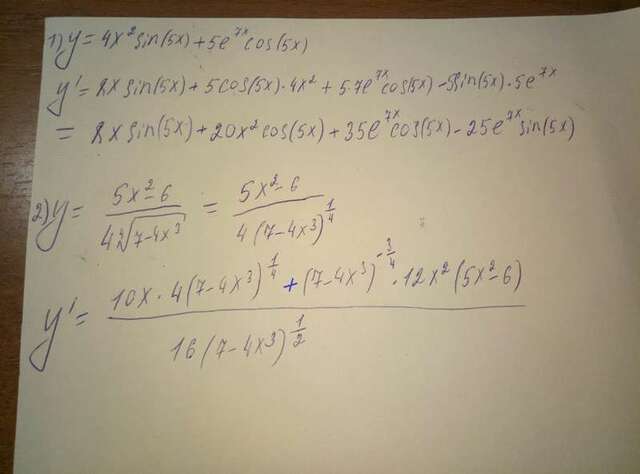 1) y = 4x² sin(5x) + 5e^{7x} cos(5x)
y' = 8x sin(5x) + 5cos(5x)·4x² + 5·7e^{7x} cos(5x) - 5sin(5x)·5e^{7x}
= 8x sin(5x) + 20x² cos(5x) + 35e^{7x} cos(5x) - 25e^{7x} sin(5x)
2) y = (5x²-6)/(4∜(7-4x³)) = (5x²-6)/(4(7-4x³)^{1/4})
y' = (10x·4(7-4x³)^{1/4} + (7-4x³)^{-3/4}·12x²(5x²-6))/(16(7-4x³)^{1/2})